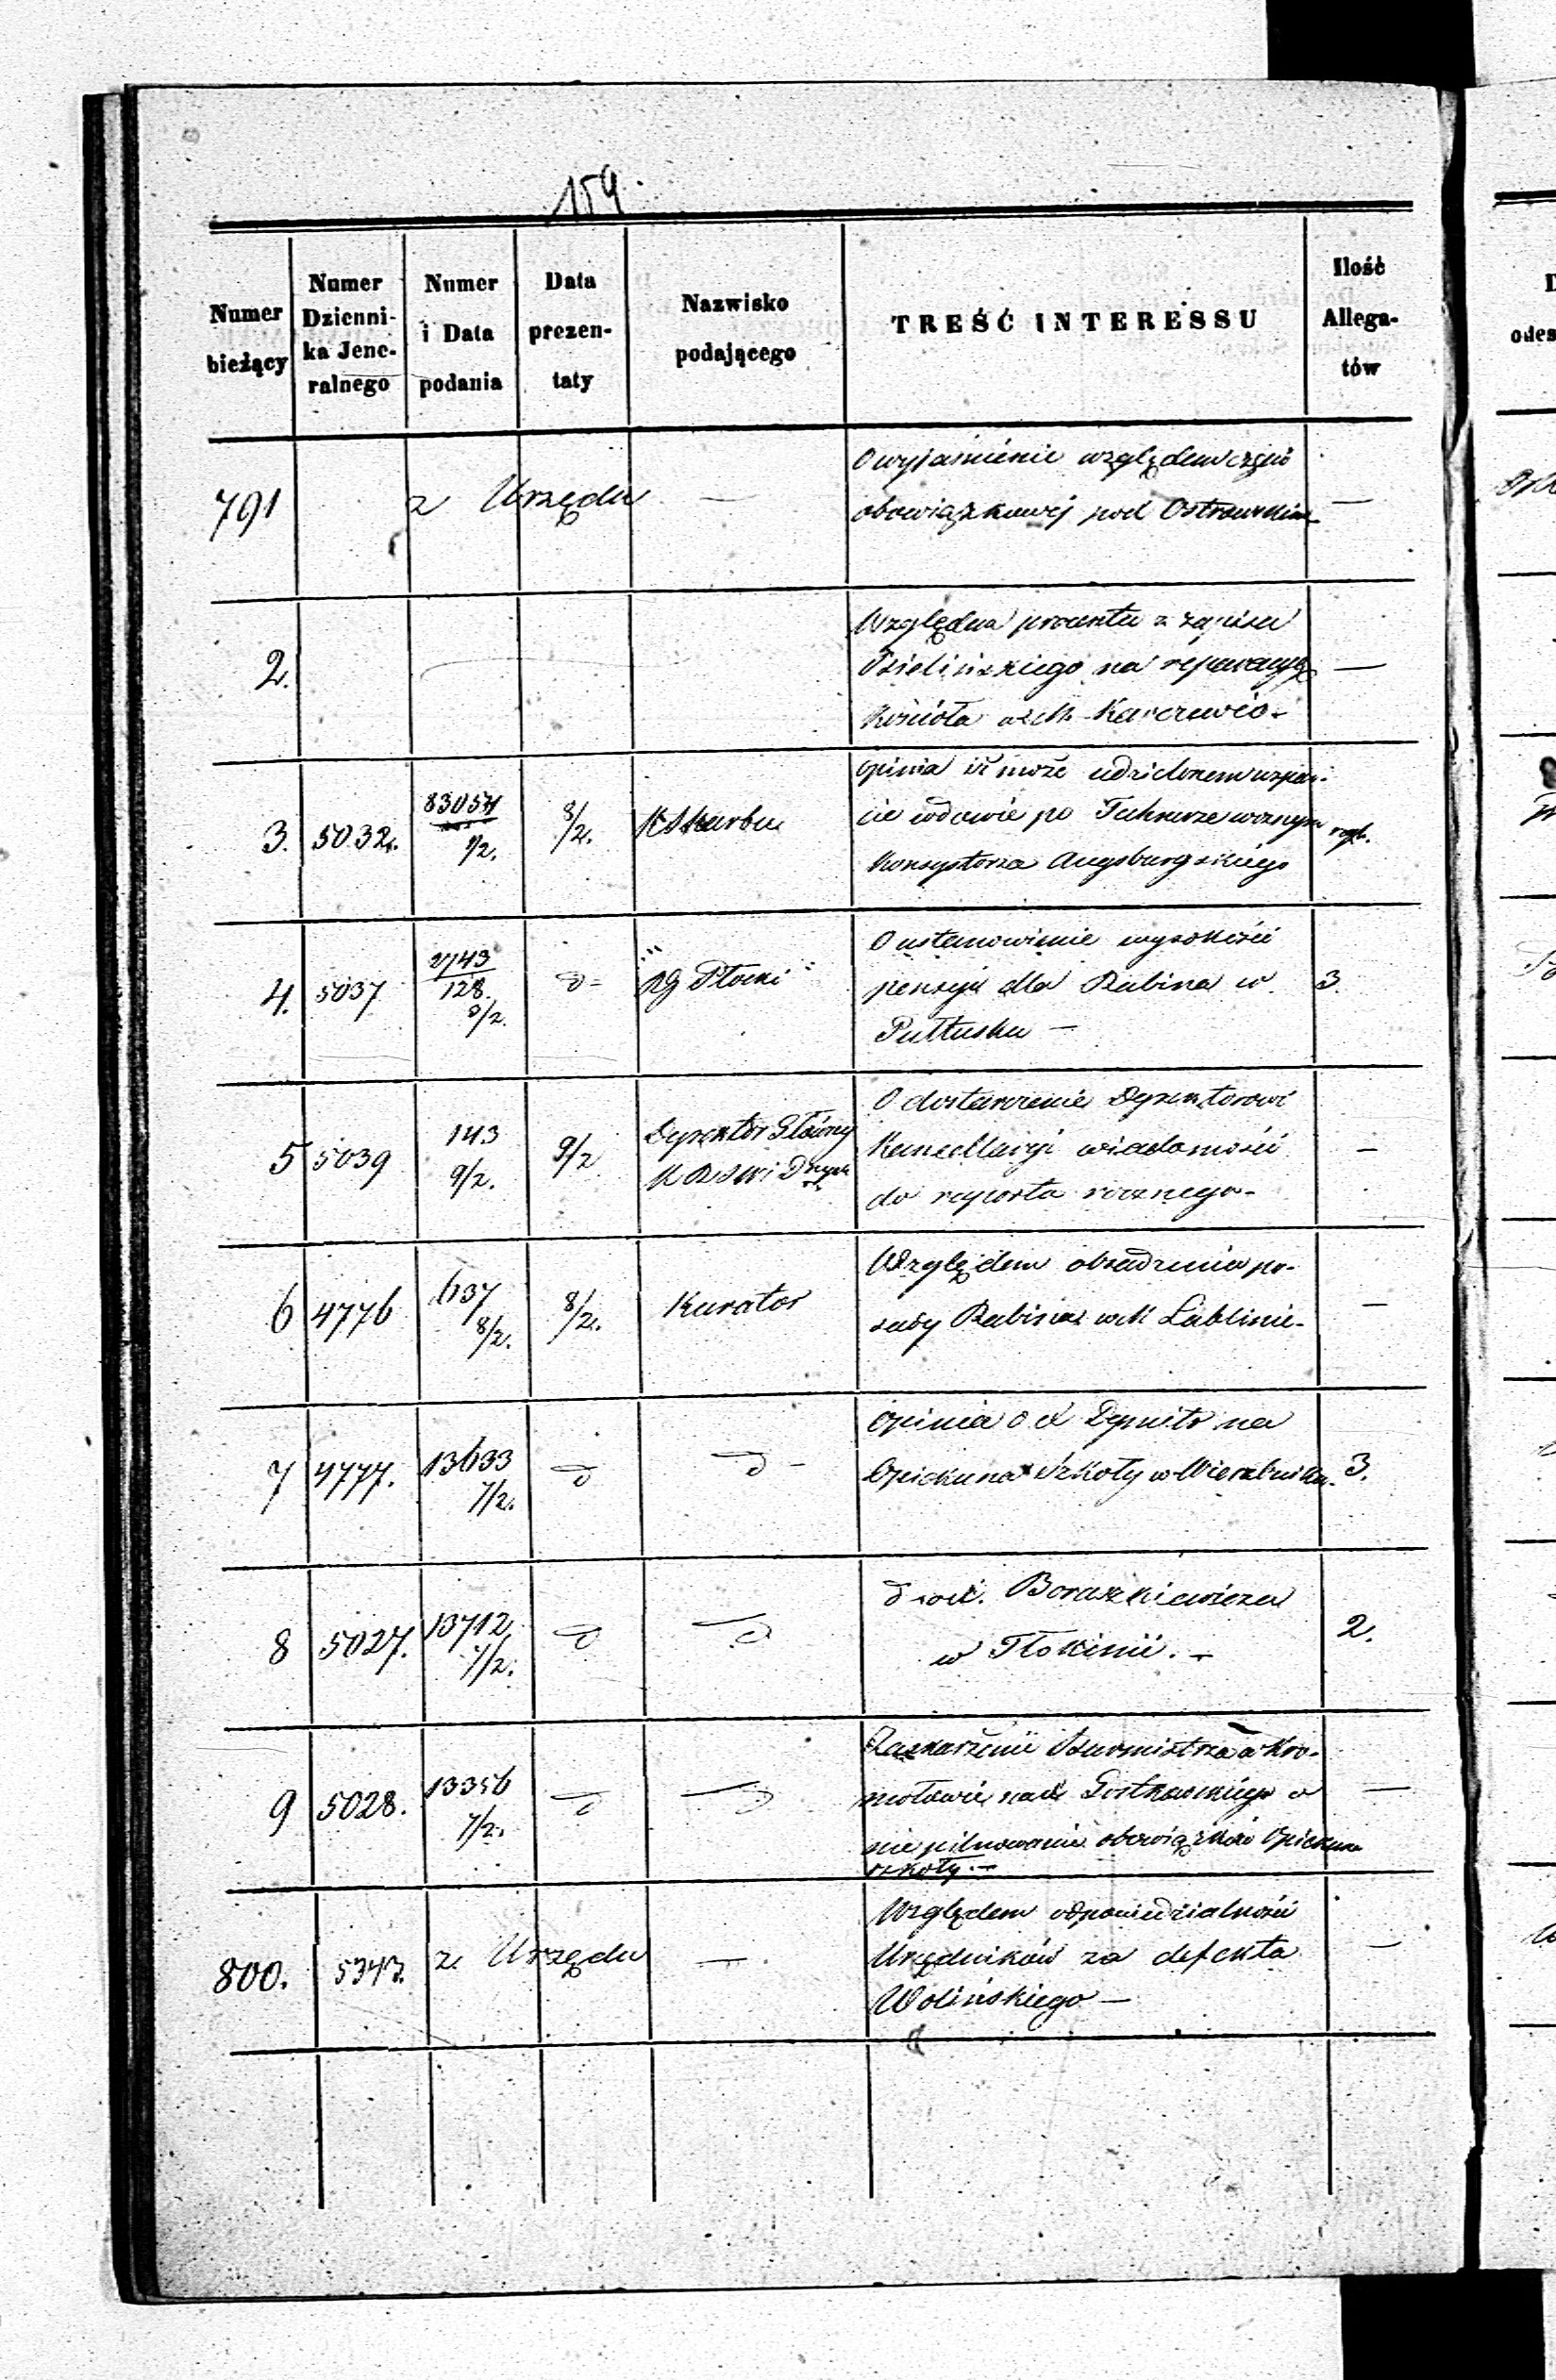 159.
Numer bieżący
Numer Dzienni-ka Jene-ralnego
Numer i Data podania
Data prezen-taty
Nazwisko podającego
TREŚĆ INTERESSU
Ilość Allega-tów
791 z Urzędu —
O wyjaśnienie względem
obowiązkowej pod Ostrowskim —
2.
Względem procentu z zapisu
na reperacyę —
Kościoła w M. Karczewie.
3. 5032. 83057 8/2. 8/2. K Skarbu
Opinia iż może
cie wdowie po woznym
Konsystorza Augsburgskiego
4. 5037 2743/128. 8/2. d= RG Płocki
O ustanowienie wysokości
pensyi dla Rabina w 3.
Pułtusku —
5 5039 143 9/2. 9/2 Dyrektor Główny
O dostarczenie Dyrektorowi
Kancellaryi wiadomości —
do raportu rocznego.
6 4776 637 8/2. 8/2. Kurator
Względem obsadzenia po-
sady Rabina w M Lublinie. —
7 4777. 13633 7/2. d d -
Opinia na
Opiekuna Szkoły w Wierzbniku. 3.
8 5027. 13712 7/2. d d
d Boraszkiewicza
w Tłokinii. — 2.
9 5028. 13356 7/2. d d
Zaskarżenie Burmistrza w Kro-
mołowie nad o —
nie pilnowanie obowiązków Opiekuna
szkoły. —
800. 5343. z Urzędu —
Względem odpowiedzialności
Urzędników za defekta —
Wolińskiego —